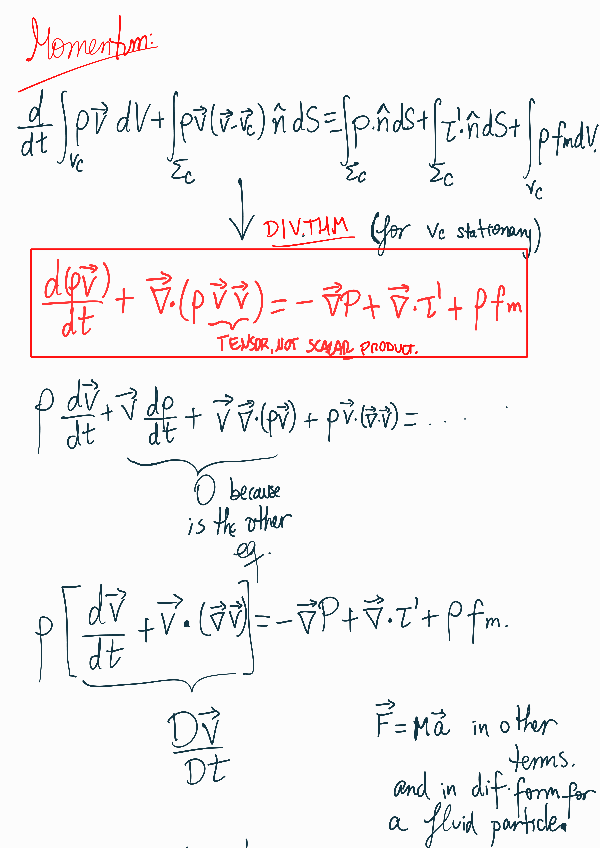 Momentum:
d/dt ∫_Vc ρv⃗ dV + ∫_Σc ρv⃗(v⃗-v⃗c) n̂ dS = ∫_Σc p·n̂ dS + ∫_Σc τ'·n̂ dS + ∫_Vc ρ fm dV.
DIV.THM (for Vc stationary)
d(ρv⃗)/dt + ∇⃗·(ρ v⃗ v⃗) = -∇⃗P + ∇⃗·τ' + ρ fm
TENSOR, NOT SCALAR PRODUCT.
ρ dv⃗/dt + v⃗ dρ/dt + v⃗ ∇⃗·(ρv⃗) + ρv⃗·(∇⃗·v⃗) = ....
0 because
is the other
eq.
ρ[dv⃗/dt + v⃗·(∇⃗v⃗)] = -∇⃗P + ∇⃗·τ' + ρ fm.
Dv⃗/Dt
F⃗ = Ma⃗ in other
terms.
and in dif. form for
a fluid particle.